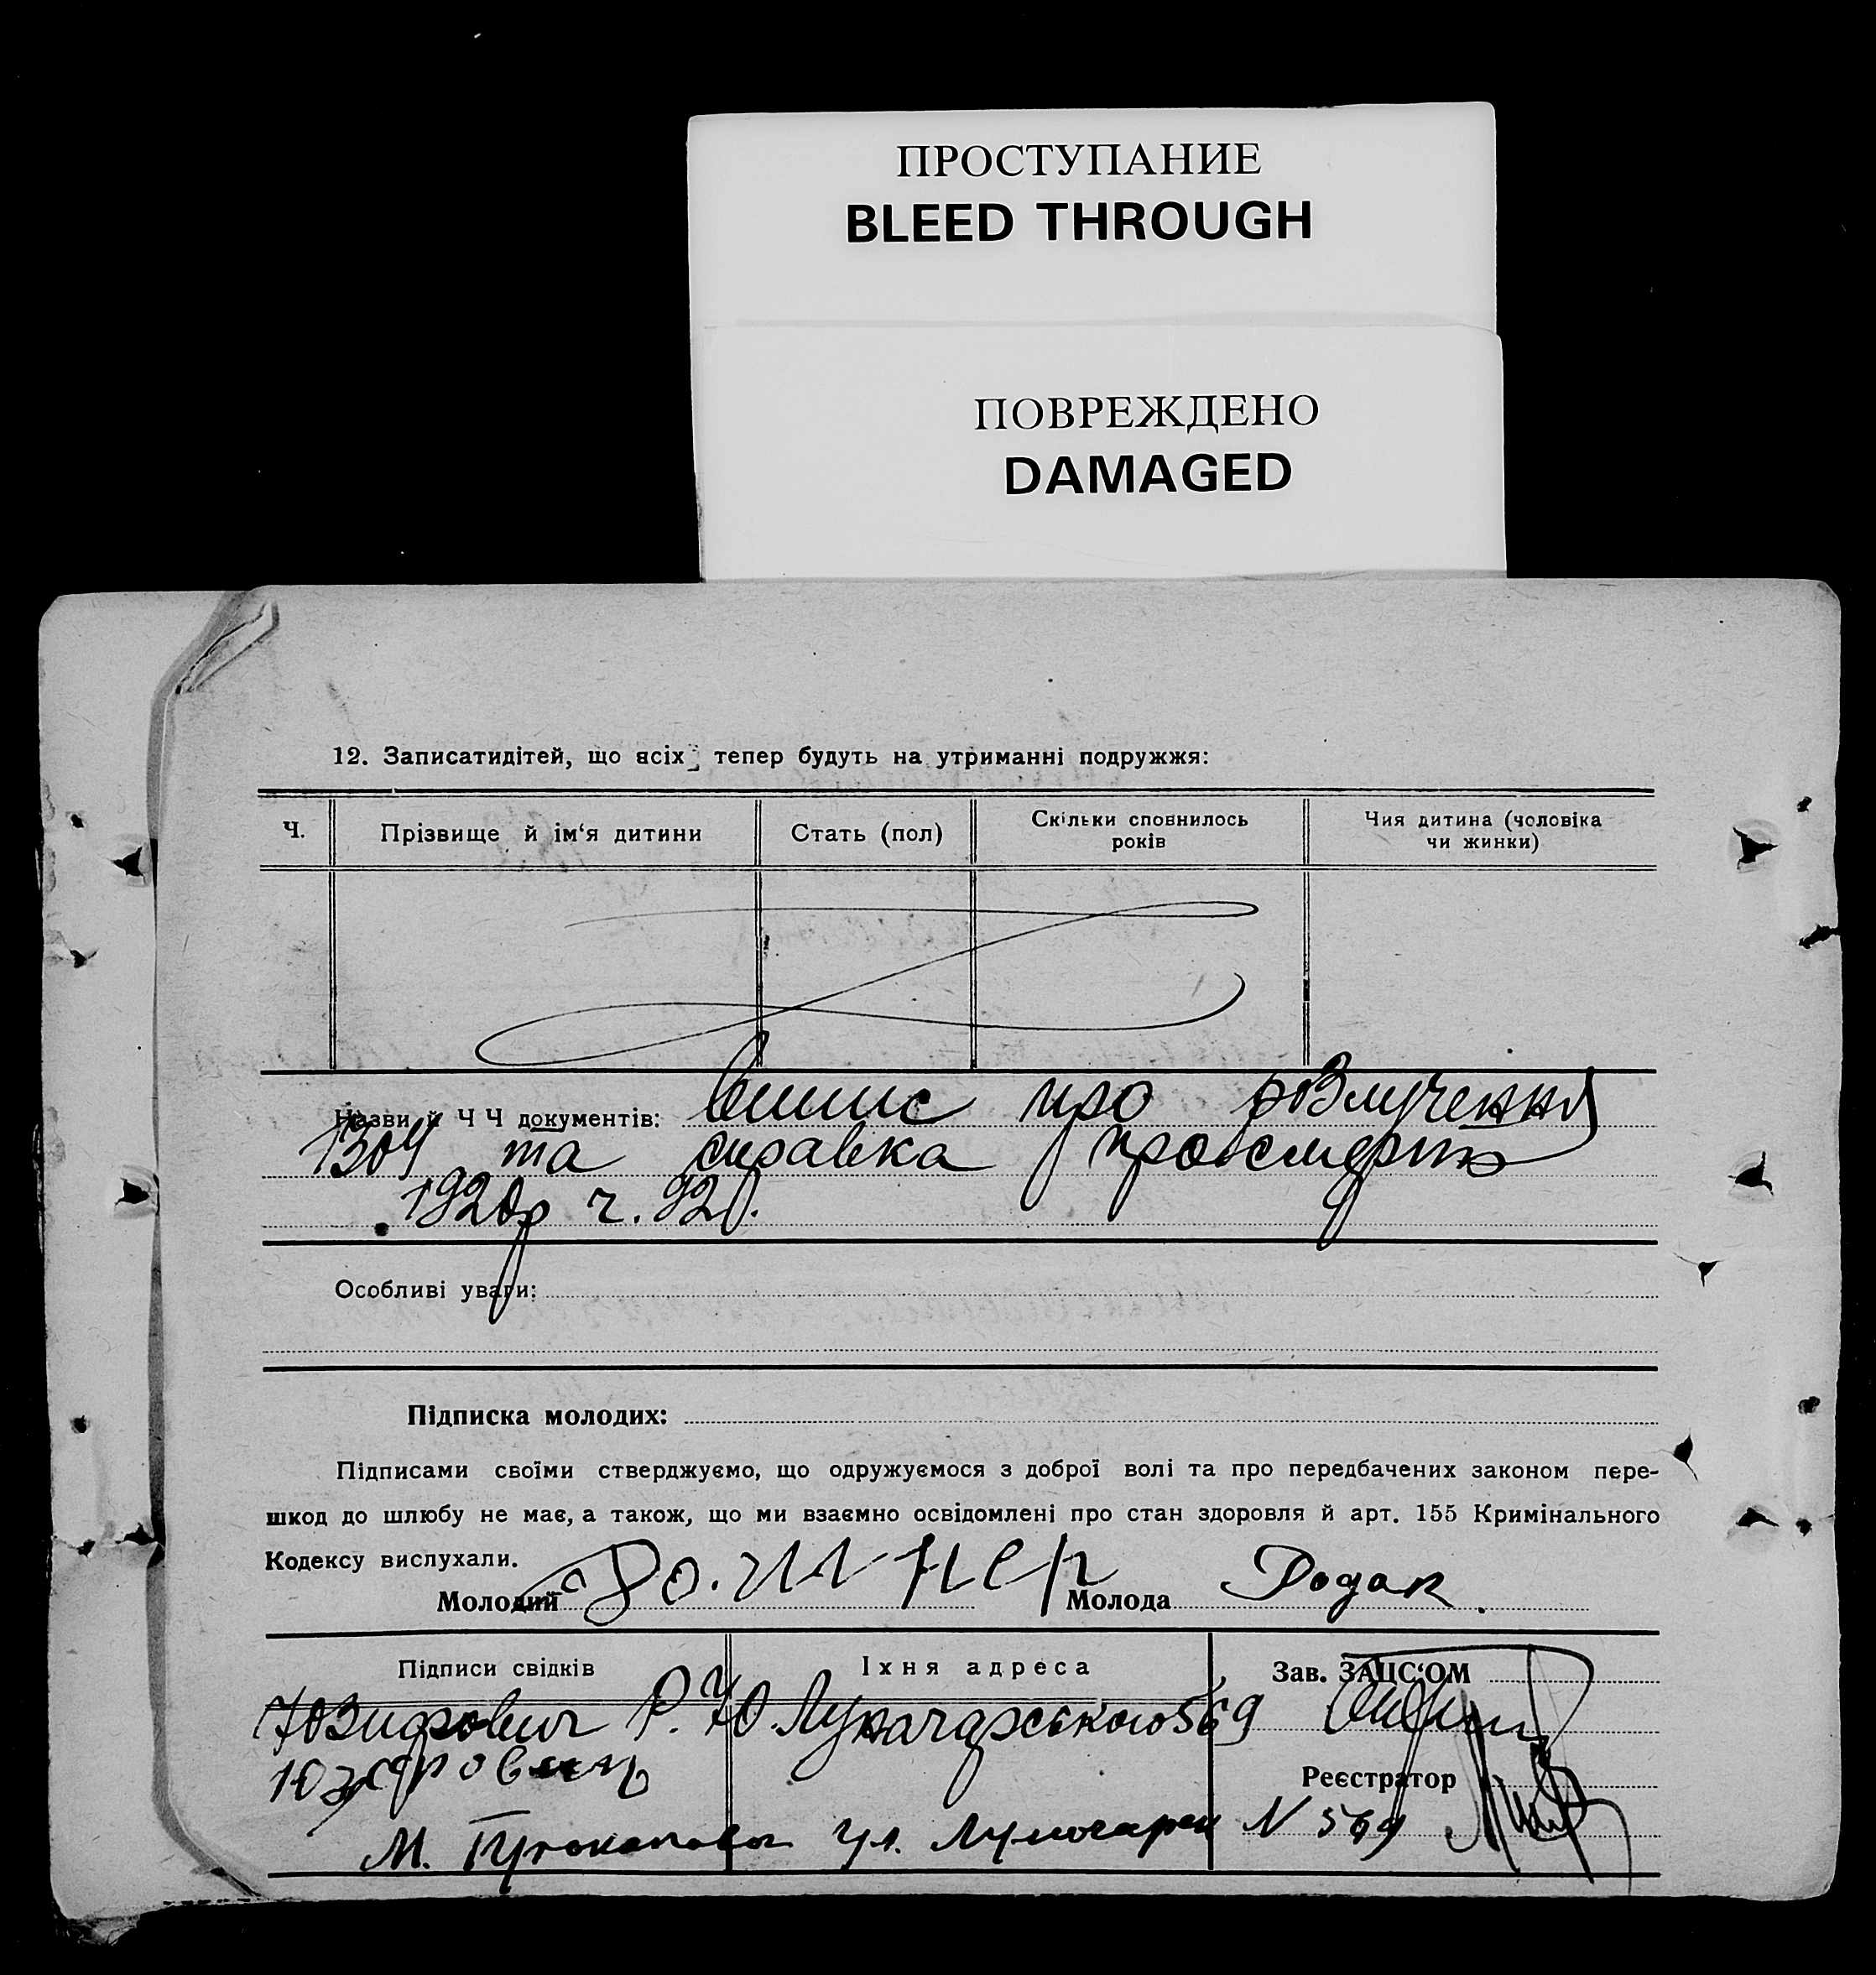 ПРОСТУПАНИЕ
BLEED THROUGH
ПОВРЕЖДЕНО
DAMAGED
12. Записатидітей, що всіх тепер будуть на утриманні подружжя:
Ч.
Прізвище й ім‘я дитини
Стать (пол)
Скільки сповнилось
років
Чия дитина (чоловіка
чи жинки)
Назви й Ч Ч документів: Випис про розлучення
1304 та справка про смерть
1920р ч. 920.
Особливі уваги:
Підписка молодих:
Підписами своїми стверджуємо, що одружуємося з доброї волі та про передбачених законом пере-
шкод до шлюбу не має, а також, що ми взаємно освідомлені про стан здоровля й арт. 155 Кримінального
Кодексу вислухали.
Молодий
Молода Додак
Підписи свідків
Їхня адреса
Зав. ЗАЦС‘ОМ
Юзифович Р. Ю. Луначарського 569
Юзефович
Реєстратор
М. ул. Луначарск N 569